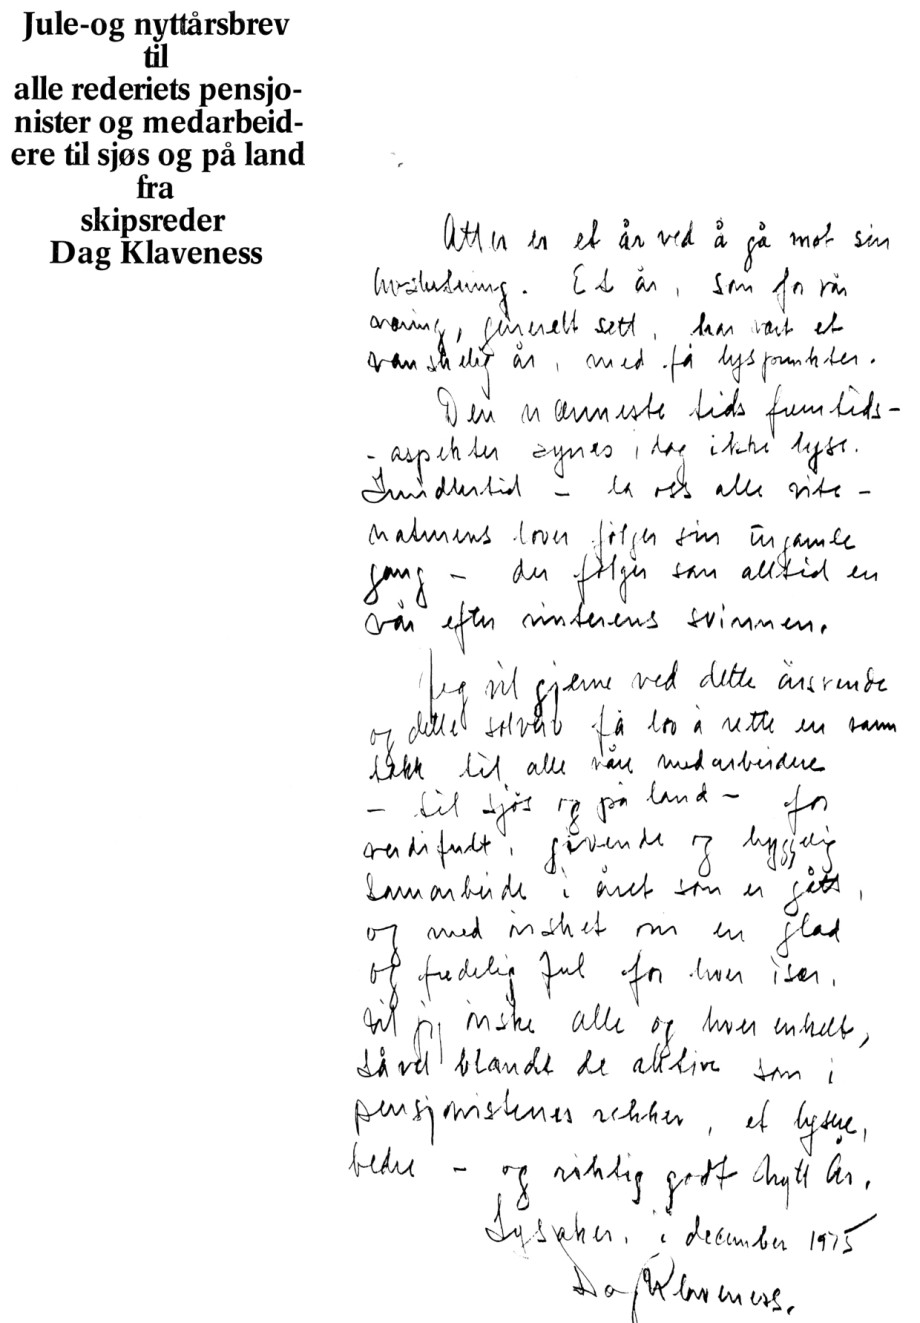 Jule-og nyttårsbrev
til
alle rederiets pensjo-
nister og medarbeid-
ere til sjøs og på land
fra
skipsreder
Dag Klaveness
Atter er et år ved å gå mot sin
avslutning. Et år, som for vår
næring, generelt sett, har vært et
vanskelig år, med få lyspunkter.
Den nærmeste tids fremtids-
- aspekter synes i dag ikke lyse.
Imidlertid - la oss alle vite -
naturens lover følger sin urgamle
gang - der følger som alltid en
vår efter vinterens svinnen.
Jeg vil gjerne ved dette årsvende
og dette solverv få lov å rette en varm
takk til alle våre medarbeidere
- til sjøs og på land - for
verdifullt, givende og hyggelig
samarbeide i året som er gått,
og med ønsket om en glad
og fredelig Jul for hver især,
vil jeg ønske alle og hver enkelt,
såvel blandt de aktive som i
pensjonistenes rekker, et lysere,
bedre - og riktig godt Nytt År.
Lysaker, i december 1975
Dag Klaveness.